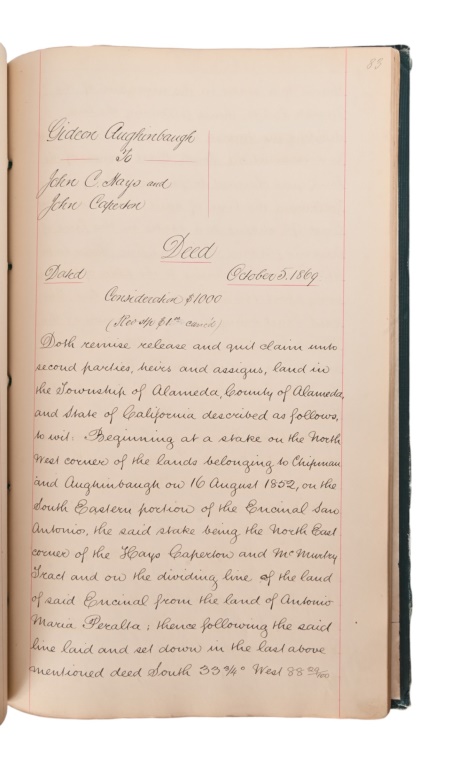 83
Gideon Aughinbaugh
To
John C. Hays and
John Caperton
Deed
Dated October 5, 1869
Consideration $1000
(Rev stp $1.00 canc'd)
Doth remise release and quit claim unto
second parties, heirs and assigns, land in
the Township of Alameda, County of Alameda,
and State of California described as follows,
to wit: Beginning at a stake on the North
West corner of the lands belonging to Chipman
and Aughinbaugh on 16 August 1852, on the
South Eastern portion of the Encinal San
Antonio, the said stake being the North East
corner of the Hays Caperton and McMurtry
Tract and on the dividing line of the land
of said Encinal from the land of Antonio
Maria Peralta; thence following the said
line laid and set down in the last above
mentioned deed South 33 3/4° West 88